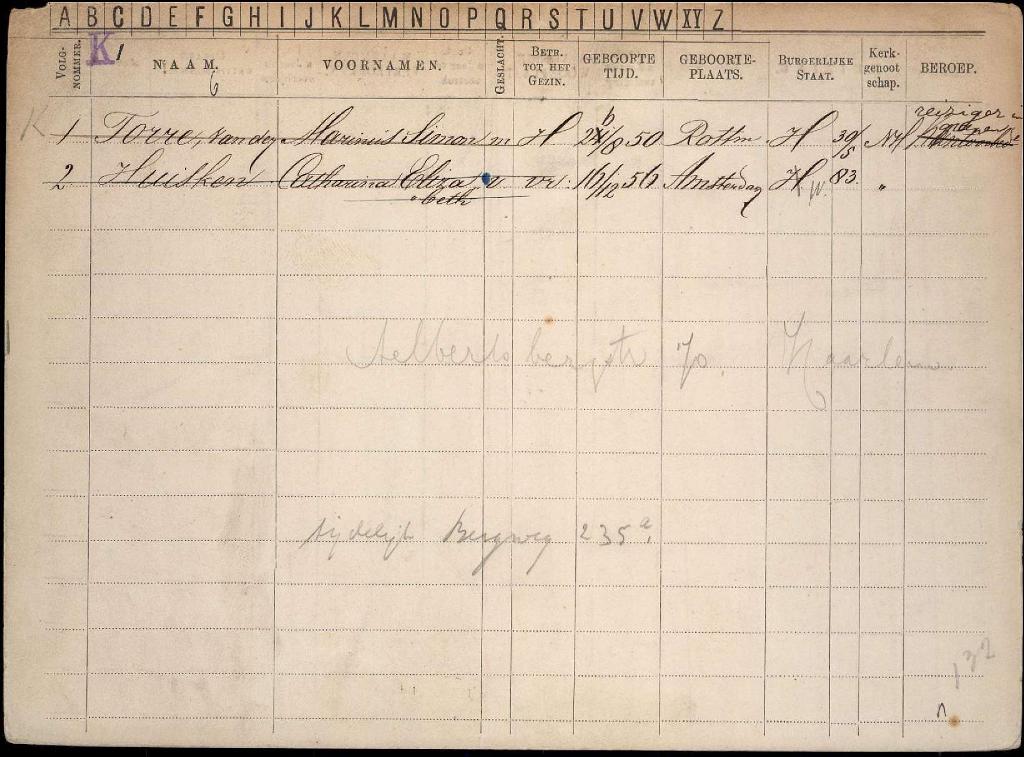 A B C D E F G H I J K L M N O P Q R S T U V W XY Z
K 1
VOLG-NOMMER. NAAM. VOORNAMEN. GESLACHT. BETR. TOT HET GEZIN. GEBOORTE TIJD. GEBOORTE-PLAATS. BURGERLIJKE STAAT. Kerk-genoot schap. BEROEP.
6
K
reiziger in
1 Torre, van der Marinus Simon m H 26/8 50 Rottm H 30/5 NH
2 Huisken Catharina Eliza v vr. 16/12 56 Amsterdam H 83. "
beth
W.
Aelbertsbergstr 70. Haarlem
tijdelijk Bergweg 235a.
132